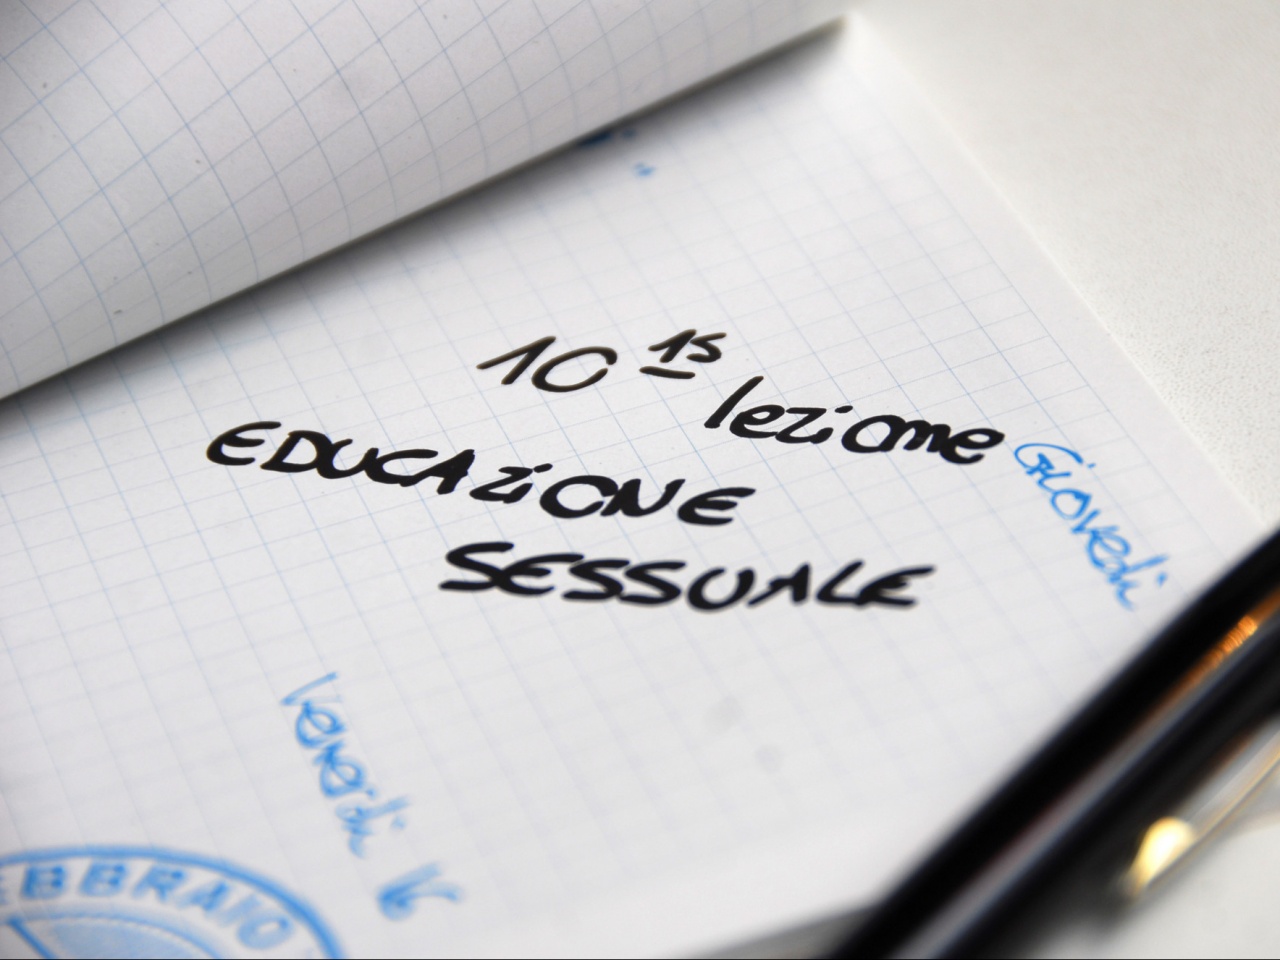 10 15 lezione
EDUCAZIONE
SESSUALE
Giovedì
Venerdì 16
EBBRAIO